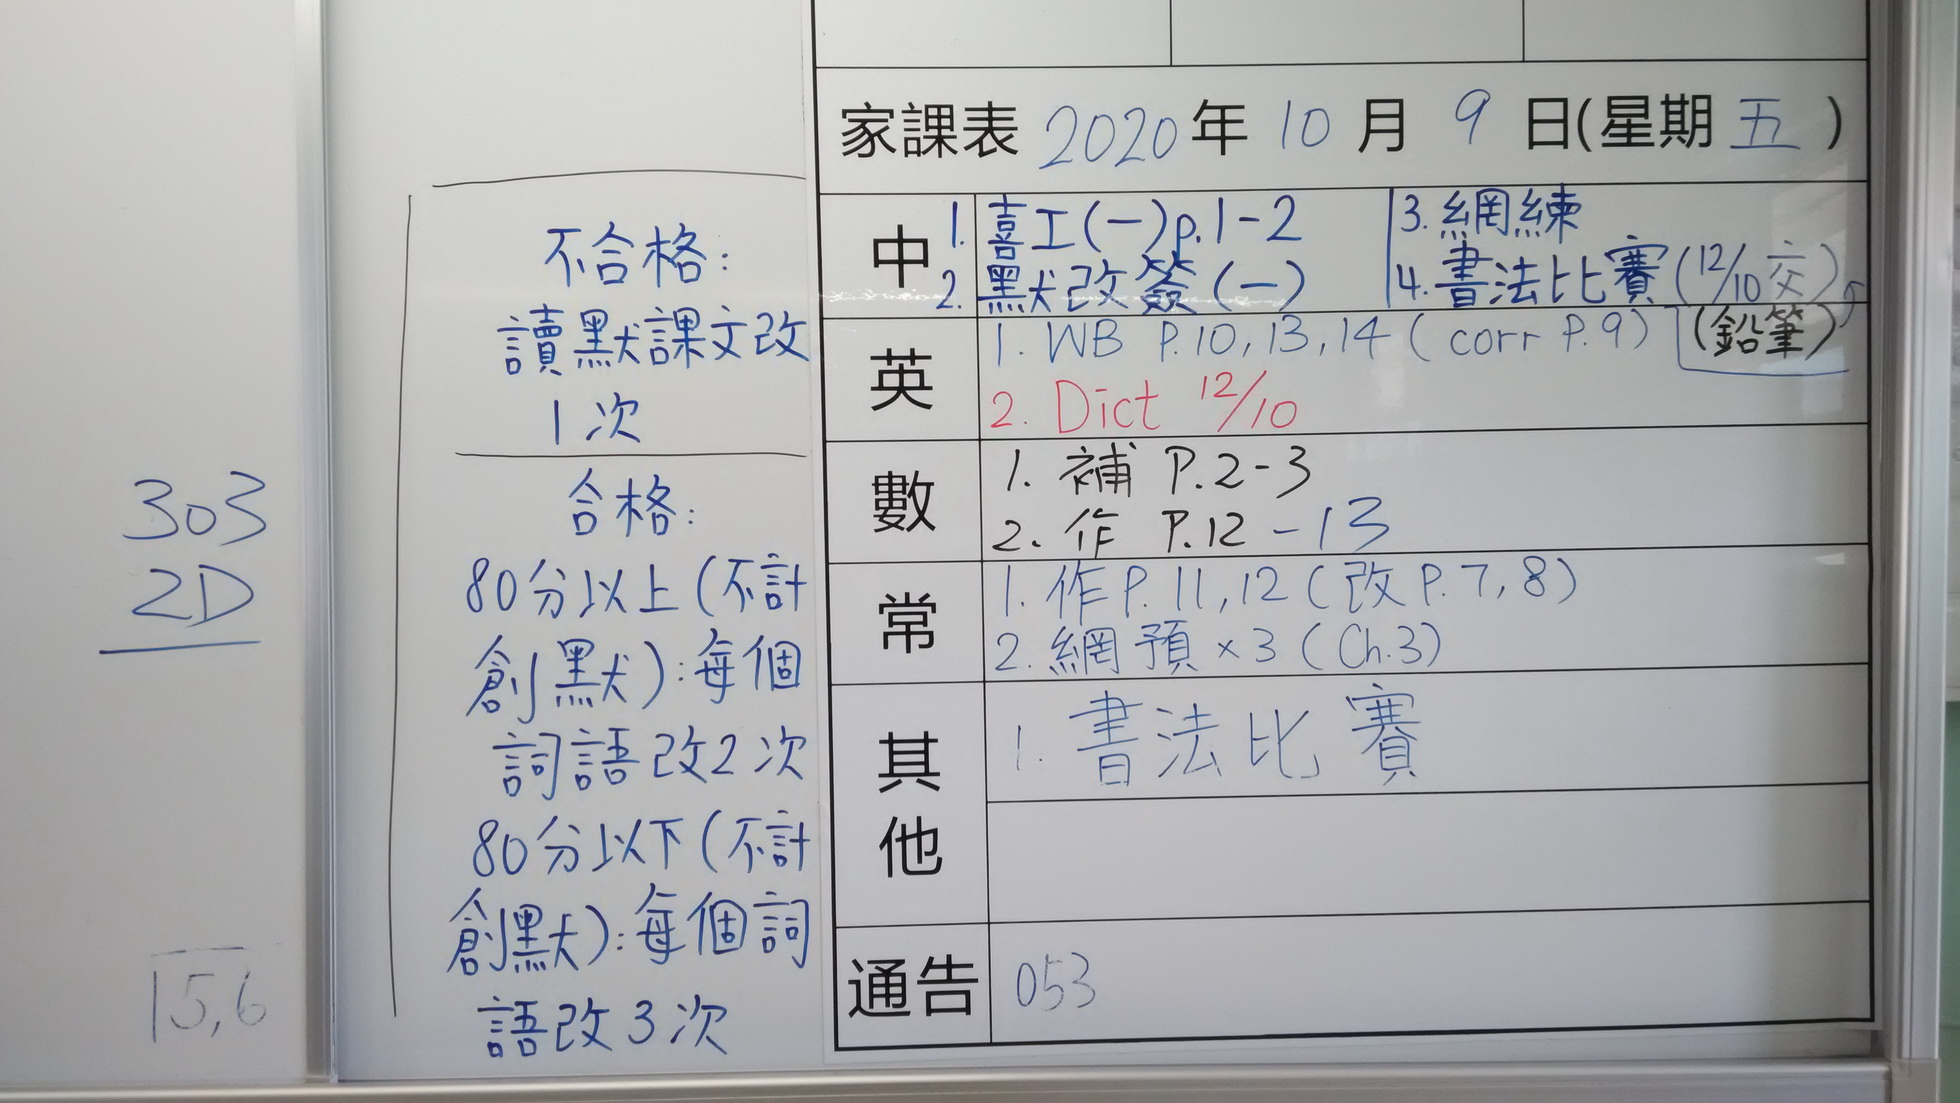 家課表 2020年 10月 9日(星期五)
中
1. 喜工(一)p.1-2
2. 默改簽(一)
3. 網練
4. 書法比賽(12/10交)
(鉛筆)
英
1. WB P.10,13,14 (corr P.9)
2. Dict 12/10
數
1. 補 P.2-3
2. 作 P.12-13
常
1. 作P.11,12(改P.7,8)
2. 網預×3(Ch.3)
其他
1. 書法比賽
通告
053
不合格:
讀默課文改
1次
合格:
80分以上(不計
創默):每個
詞語改2次
80分以下(不計
創默):每個詞
語改3次
303
2D
15,6